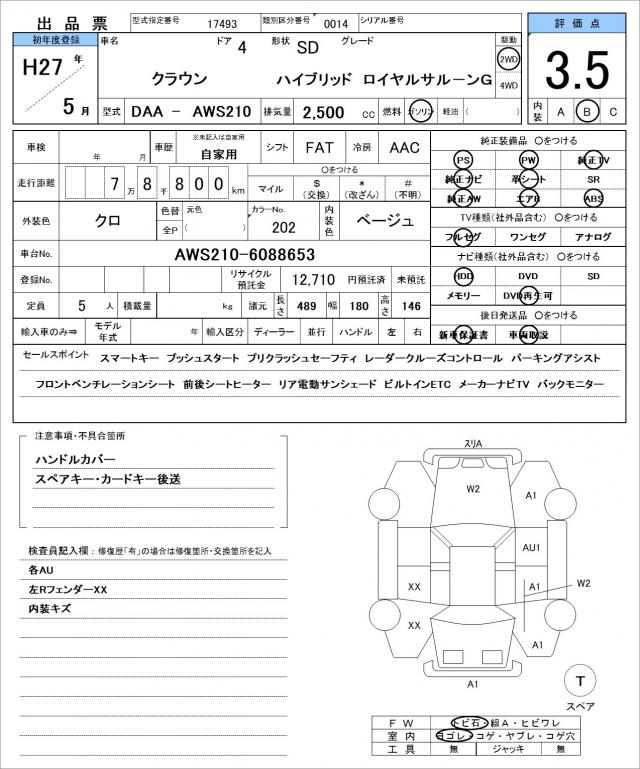 出品票 型式指定番号 17493 類別区分番号 0014 シリアル番号 評価点
初年度登録 車名 ドア 4 形状 SD グレード 駆動
H27 年 クラウン ハイブリッド ロイヤルサル－ンG 2WD 3.5
4WD
5 月 型式 DAA － AWS210 排気量 2,500 cc 燃料 ガソリン 軽油 ( ) 内装 A B C
車検 年 月 車歴 ※未記入は自家用 自家用 シフト FAT 冷房 AAC 純正装備品 〇をつける
PS PW 純正TV
走行距離 7 万 8 千 8 0 0 km 〇をつける
マイル $ (交換) * (改ざん) # (不明) 純正ナビ 革シート SR
純正AW エアB ABS
外装色 クロ 色替 元色 全P ( ) カラーNo. 202 内装色 ベージュ TV種類(社外品含む) 〇をつける
フルセグ ワンセグ アナログ
車台No. AWS210-6088653 ナビ種類(社外品含む) 〇をつける
登録No. リサイクル預託金 12,710 円預託済 未預託 HDD DVD SD
定員 5 人 積載量 kg 諸元 長さ 489 幅 180 高さ 146 メモリー DVD再生可
後日発送品 〇をつける
輸入車のみ⇒ モデル年式 年 輸入区分 ディーラー 並行 ハンドル 左 右 新車保証書 車両取説
セールスポイント スマートキー プッシュスタート プリクラッシュセーフティ レーダークルーズコントロール パーキングアシスト
フロントベンチレーションシート 前後シートヒーター リア電動サンシェード ビルトインETC メーカーナビTV バックモニター
注意事項・不具合箇所
ハンドルカバー
スペアキー・カードキー後送
検査員記入欄：修復歴「有」の場合は修復箇所・交換箇所を記入
各AU
左RフェンダーXX
内装キズ
スリA
W2
A1
AU1
XX A1 W2
XX
A1
A1
T
スペア
FW トビ石・線A・ヒビワレ
室内 ヨゴレ・コゲ・ヤブレ・コゲ穴
工具 無 ジャッキ 無